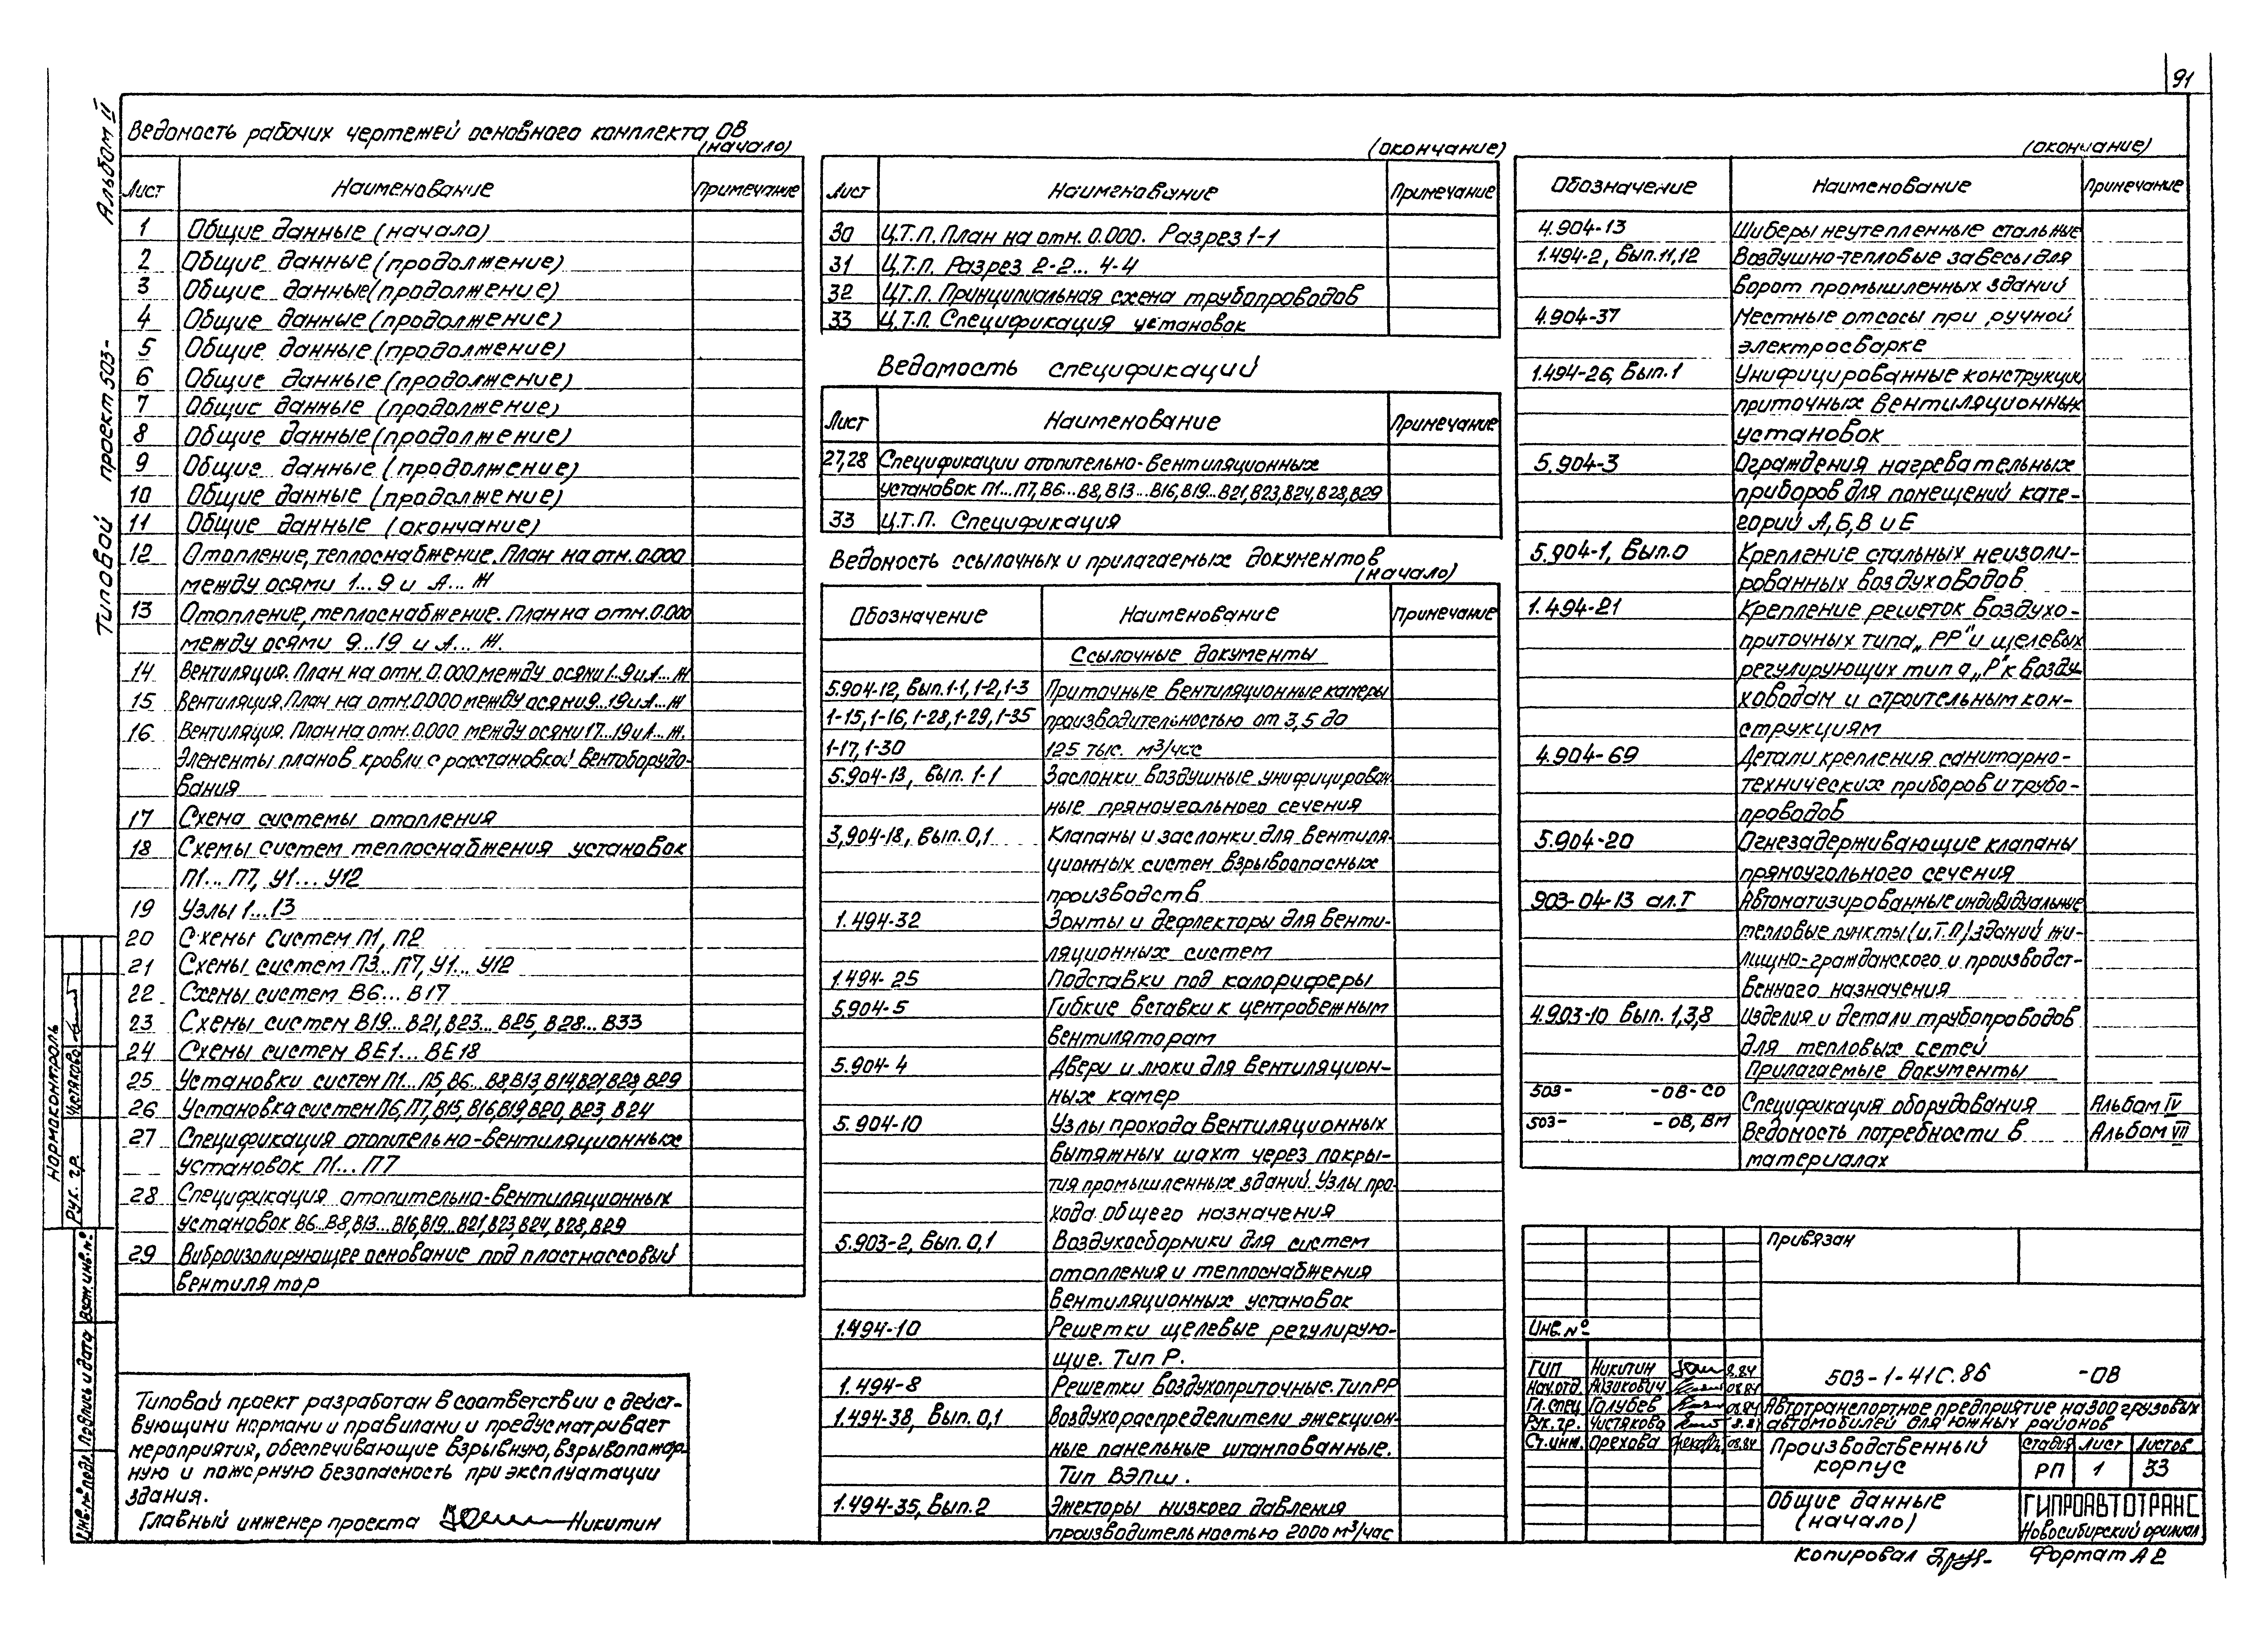 91
Альбом II
Типовой проект 503-
Ведомость рабочих чертежей основного комплекта ОВ
(начало)
Лист Наименование Примечание
1 Общие данные (начало)
2 Общие данные (продолжение)
3 Общие данные (продолжение)
4 Общие данные (продолжение)
5 Общие данные (продолжение)
6 Общие данные (продолжение)
7 Общие данные (продолжение)
8 Общие данные (продолжение)
9 Общие данные (продолжение)
10 Общие данные (продолжение)
11 Общие данные (окончание)
12 Отопление, теплоснабжение. План на отм. 0.000
между осями 1...9 и А...Ж
13 Отопление, теплоснабжение. План на отм. 0.000
между осями 9...19 и А...Ж.
14 Вентиляция. План на отм. 0.000 между осями 1..9 и А...Ж
15 Вентиляция. План на отм. 0.000 между осями 9..19 и А...Ж
16 Вентиляция. План на отм. 0.000 между осями 17..19 и А...Ж.
Элементы планов кровли с расстановкой вентоборудо-
вания
17 Схема системы отопления
18 Схемы систем теплоснабжения установок
П1...П7, У1...У12
19 Узлы 1...13
20 Схемы систем П1, П2
21 Схемы систем П3...П7, У1...У12
22 Схемы систем В6...В17
23 Схемы систем В19...В21, В23...В25, В28...В33
24 Схемы систем ВЕ1...ВЕ18
25 Установки систем П1...П5, В6...В8, В13, В14, В21, В28, В29
26 Установка систем П6, П7, В15, В16, В19, В20, В23, В24
27 Спецификация отопительно-вентиляционных
установок П1...П7
28 Спецификация отопительно-вентиляционных
установок В6...В8, В13...В16, В19...В21, В23, В24, В28, В29
29 Виброизолирующее основание под пластмассовый
вентилятор
Типовой проект разработан в соответствии с дейст-
вующими нормами и правилами и предусматривает
мероприятия, обеспечивающие взрывную, взрывопожар-
ную и пожарную безопасность при эксплуатации
здания.
Главный инженер проекта Никитин
(окончание)
Лист Наименование Примечание
30 Ц.Т.П. План на отм. 0.000. Разрез 1-1
31 Ц.Т.П. Разрез 2-2... 4-4
32 Ц.Т.П. Принципиальная схема трубопроводов
33 Ц.Т.П. Спецификация установок
Ведомость спецификаций
Лист Наименование Примечание
27,28 Спецификации отопительно-вентиляционных
установок П1...П7, В6...В8, В13...В16, В19...В21, В23, В24, В28, В29
33 Ц.Т.П. Спецификация
Ведомость ссылочных и прилагаемых документов
(начало)
Обозначение Наименование Примечание
Ссылочные документы
5.904-12, вып. 1-1, 1-2, 1-3 Приточные вентиляционные камеры
1-15, 1-16, 1-28, 1-29, 1-35 производительностью от 3,5 до
1-17, 1-30 125 тыс. м³/час
5.904-13, вып. 1-1 Заслонки воздушные унифицирован
ные прямоугольного сечения
3.904-18, вып. 0,1 Клапаны и заслонки для вентиля-
ционных систем взрывоопасных
производств
1.494-32 Зонты и дефлекторы для венти-
ляционных систем
1.494-25 Подставки под калориферы
5.904-5 Гибкие вставки к центробежным
вентиляторам
5.904-4 Двери и люки для вентиляцион-
ных камер
5.904-10 Узлы прохода вентиляционных
вытяжных шахт через покры-
тия промышленных зданий. Узлы про-
хода общего назначения
5.903-2, вып. 0,1 Воздухосборники для систем
отопления и теплоснабжения
вентиляционных установок
1.494-10 Решетки щелевые регулирую-
щие. Тип Р.
1.494-8 Решетки воздухоприточные. Тип РР
1.494-38, вып. 0,1 Воздухораспределители эжекцион-
ные панельные штампованные.
Тип ВЭПш.
1.494-35, вып. 2 Эжекторы низкого давления
производительностью 2000 м³/час
(окончание)
Обозначение Наименование Примечание
4.904-13 Шиберы неутепленные стальные
1.494-2, вып. 11,12 Воздушно-тепловые завесы для
ворот промышленных зданий
4.904-37 Местные отсосы при ручной
электросварке
1.494-26, вып. 1 Унифицированные конструкции
приточных вентиляционных
установок
5.904-3 Ограждения нагревательных
приборов для помещений кате-
горий А, Б, В и Е
5.904-1, вып. 0 Крепление стальных неизоли-
рованных воздуховодов
1.494-21 Крепление решеток воздухо-
приточных типа „РР" и щелевых
регулирующих типа „Р" к возду-
ховодам и строительным кон-
струкциям
4.904-69 Детали крепления санитарно-
технических приборов и трубо-
проводов
5.904-20 Огнезадерживающие клапаны
прямоугольного сечения
903-04-13 ал. I Автоматизированные индивидуальные
тепловые пункты (и.т.п.) зданий жи-
лищно-гражданского и производст-
венного назначения
4.903-10 вып. 1,3,8 Изделия и детали трубопроводов
для тепловых сетей
Прилагаемые документы
503- -ОВ-СО Спецификация оборудования Альбом IV
503- -ОВ, ВМ Ведомость потребности в Альбом VII
материалах
Привязан
Инв. №
503-1-41С.86 -ОВ
ГИП Никитин 8.84
Нач. отд. Айзикович 08.84
Гл. спец. Голубев 08.84
Рук. гр. Чистякова 8.84
Ст. инж. Орехова 08.84
Автотранспортное предприятие на 300 грузовых
автомобилей для южных районов
Производственный
корпус
Стадия Лист Листов
РП 1 33
Общие данные
(начало)
ГИПРОАВТОТРАНС
Новосибирский филиал
Копировал Формат А2
Нормоконтроль
Рук. гр. Чистякова
Взам. инв. №
Подпись и дата
Инв. № подл.